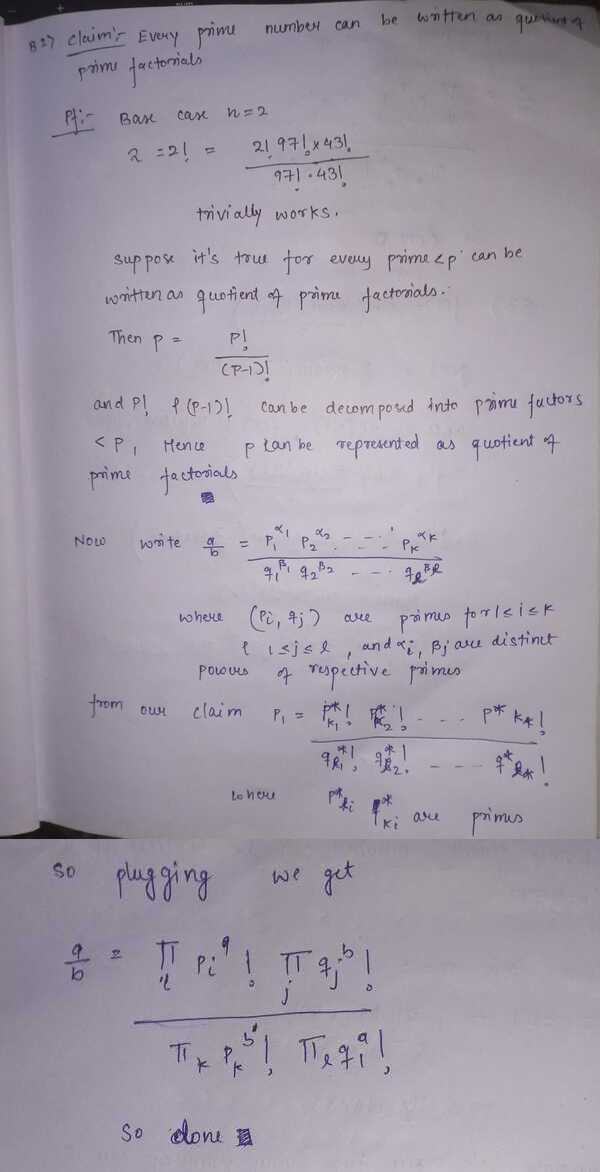 B27) Claim:- Every prime number can be written as quotient of
prime factorials
Pf:- Base case n=2
2 = 2! = 2! 97! × 43!
97! · 43!
trivially works.
suppose it's true for every prime < p can be
written as quotient of prime factorials.
Then p = P!
(P-1)!
and P! & (P-1)! can be decomposed into prime factors
< P, Hence p can be represented as quotient of
prime factorials
Now write a/b = p₁^α₁ p₂^α₂ ---- pₖ^αₖ
q₁^β₁ q₂^β₂ --- qₗ^βₗ
where (Pi, qj) are primes for 1≤i≤k
& 1≤j≤l, and αi, βj are distinct
powers of respective primes
from our claim P₁ = p*k₁! p*k₂! ---- p*k*!
q*l₁! q*l₂! ---- q*l*!
where p*li are primes
So plugging we get
a/b = Π Pi^a! Πj qj^b!
Πk Pk^b'! Πl q^a!
So done